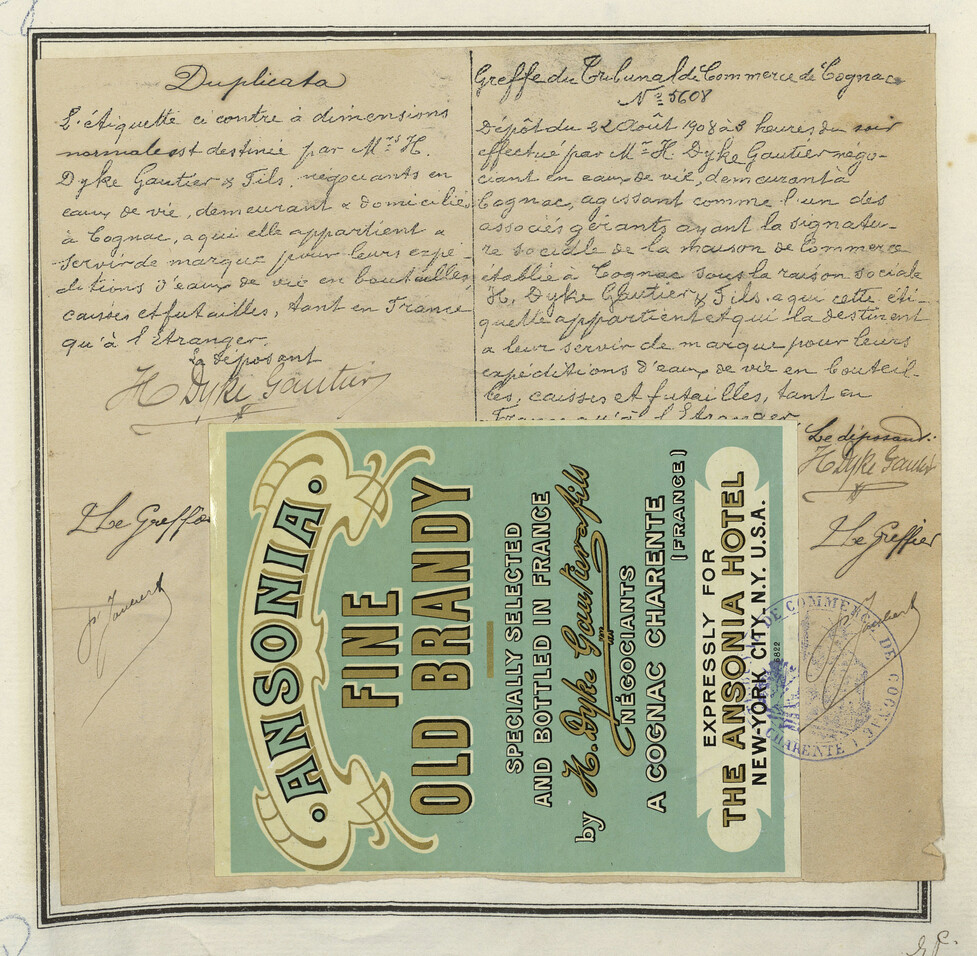 Duplicata
L'étiquette ci contre à dimensions
normales est destinée par Mrs H.
Dyke Gautier & Fils, négociants en
eaux de vie, demeurant & domiciliés
à Cognac, a qui elle appartient a
servir de marque pour leurs expé-
ditions d'eaux de vie en bouteilles,
caisses et futailles, tant en France
qu'à l'Etranger.
Le déposant
H Dyke Gautier
Le Greffier
Greffe du Tribunal de Commerce de Cognac
No 5608
Dépôt du 22 Août 1908 à 3 heures du soir
effectué par Mr H. Dyke Gautier négo-
ciant en eaux de vie, demeurant à
Cognac, agissant comme l'un des
associés gérants ayant la signatu-
re sociale de la maison de Commerce
établie à Cognac sous la raison sociale
H. Dyke Gautier & Fils. a qui cette éti-
quette appartient et qui la destinent
a leur servir de marque pour leurs
expéditions d'eaux de vie en bouteil-
les, caisses et futailles, tant en
France qu'à l'Etranger.
Le déposant:
H Dyke Gautier
Le Greffier
ANSONIA
FINE
OLD BRANDY
SPECIALLY SELECTED
AND BOTTLED IN FRANCE
by H. Dyke Gautier & fils
NÉGOCIANTS
A COGNAC CHARENTE
(FRANCE)
EXPRESSLY FOR
THE ANSONIA HOTEL
NEW-YORK CITY, N.Y. U.S.A.
8822
DE COMMERCE DE COGNAC
CHARENTE